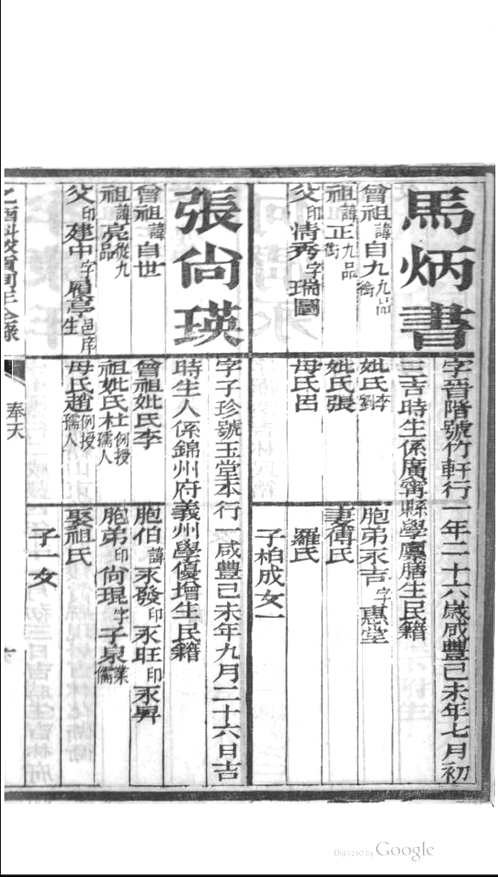 馬炳書
字晉階號竹軒行一年二十六歲咸豐己未年七月初
三吉時生係廣寧縣學廩膳生民籍
曾祖諱自九九品銜
祖諱正九品銜
父印清秀字瑞圖
妣氏李劉
妣氏張
母氏呂
胞弟永吉字惠堂
妻傅氏
羅氏
子柏成女一
張尙瑛
字子珍號玉堂本行一咸豐己未年九月二十六日吉
時生人係錦州府義州學優增生民籍
曾祖諱自世
祖諱亮從九品
父印建中字履亭邑庠生
曾祖妣氏李
祖妣氏杜例授孺人
母氏趙例授孺人
胞伯諱永發印永旺印永昇
胞弟印尙琨字子泉業儒
娶祖氏
子一女
乙酉科
同年全錄
奉天
Digitized by Google